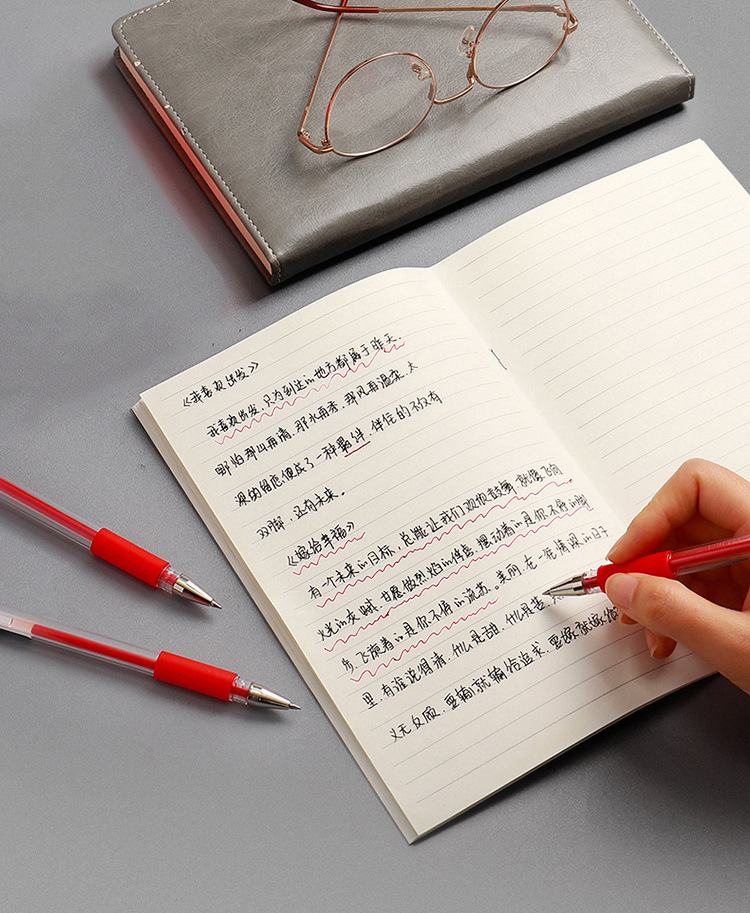 《我喜欢出发》
我喜欢出发，只为到达的地方都属于昨天.
哪怕那山再清，那水再秀，那风再温柔，太
深的留恋便成了一种羁绊，绊住的不仅有
双脚，还有未来。
《嫁给幸福》
有一个未来的目标，总能让我们欢欣鼓舞，就像飞向
火光的灰蛾，甘愿做烈焰的俘虏，摆动着的是你不停的脚
步，飞旋着的是你不停的流苏。美丽，在一死情深的日子
里，有谁说得清，什么是甜，什么是苦，
义无反顾，要输就输给追求，要嫁就嫁给